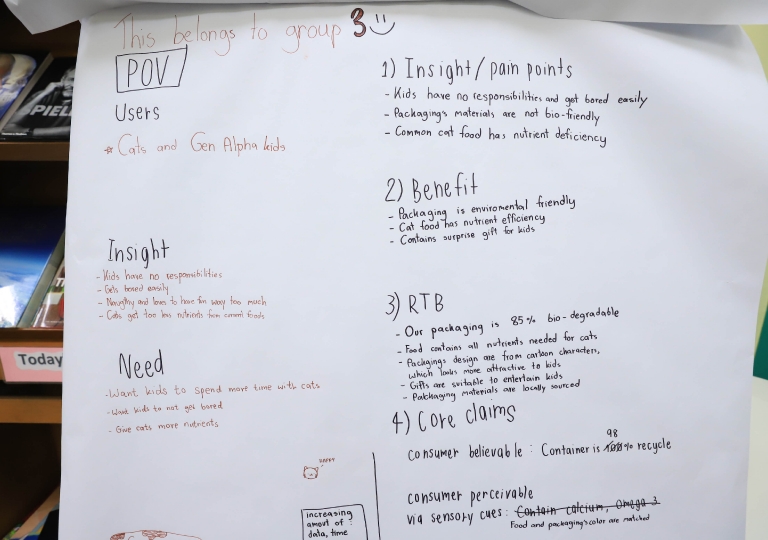 This belongs to group 3
POV
Users
* Cats and Gen Alpha kids
Insight
- Kids have no responsibilities
- Gets bored easily
- Naughty and loves to have fun way too much
- Cats get too less nutrients from current foods
Need
- Want kids to spend more time with cats
- Want kids to not get bored
- Give cats more nutrients
HAPPY
increasing
amout of :
data, time
1) Insight/pain points
- Kids have no responsibilities and get bored easily
- Packagings materials are not bio-friendly
- Common cat food has nutrient deficiency
2) Benefit
- Packaging is enviromental friendly
- Cat food has nutrient efficiency
- Contains surprise gift for kids
3) RTB
- Our packaging is 85% bio-degradable
- Food contains all nutrients needed for cats
- Packgings design are from cartoon characters,
which looks more attractive to kids
- Gifts are suitable to entertain kids
- Packaging materials are locally sourced
4) Core claims
98
consumer believable : Container is 100% recycle
consumer perceivable
via sensory cues : Contain calcium, Omega 3
Food and packaging's color are matched
PIEL
Today